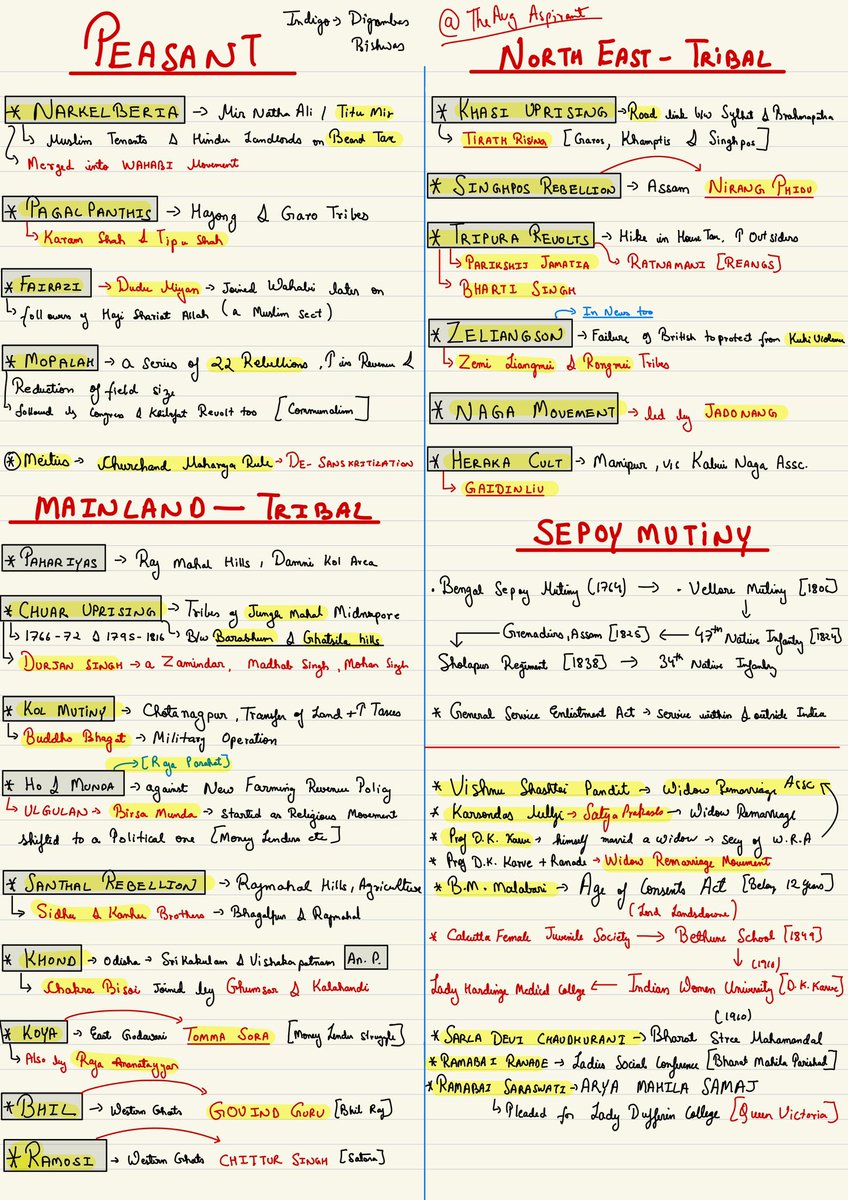 PEASANT
Indigo → Digambar
Biswas
* NARKELBERIA → Mir Natha Ali / Titu Mir
↳ Muslim Tenants & Hindu Landlords on Beard Tax
↳ Merged into WAHABI Movement
* PAGAL PANTHIS → Hajong & Garo Tribes
↳ Karam Shah & Tipu Shah
* FAIRAZI → Dudu Miyan → Joined Wahabi later on
↳ followers of Haji Shariat Allah (a Muslim Sect)
* MOPALAH → a series of 22 Rebellions, ↑ in Revenue &
Reduction of field size
↳ followed by Congress & Khilafat Revolt too [Communalism]
* Meitius → Churchand Maharaja Rule → DE-SANSKRITIZATION
MAINLAND — TRIBAL
* PAHARIYAS → Raj Mahal Hills, Damni Kol Area
* CHUAR UPRISING → Tribes of Jungle Mahal Midnapore
↳ 1766-72 & 1795-1816 ↳ B/w Barabhum & Ghatsila hills
↳ DURJAN SINGH → a Zamindar, Madhab Singh, Mohan Singh
* KOL MUTINY → Chota nagpur, Transfer of Land + ↑ Taxes
↳ Buddho Bhagat → Military Operation
[Raja Parahat]
* HO & MUNDA → against New Farming Revenue Policy
↳ ULGULAN → Birsa Munda → started as Religious Movement
shifted to a Political one [Money Lenders etc]
* SANTHAL REBELLION → Rajmahal Hills, Agriculture
↳ Sidhu & Kanhu Brothers → Bhagalpur & Rajmahal
* KHOND → Odisha → Srikakulam & Vishakapatnam An. P.
↳ Chakra Bisoi Joined by Ghumsar & Kalahandi
* KOYA → East Godavari TOMMA SORA [Money Lender struggle]
↳ Also by Raja Anantayyar
* BHIL → Western Ghats GOVIND GURU [Bhil Raj]
* RAMOSI → Western Ghats CHITTUR SINGH [Satara]
@ The Avg Aspirant
NORTH EAST - TRIBAL
* KHASI UPRISING → Road link b/w Sylhet & Brahmaputra
↳ TIRATH RISING [Garos, Khamptis & Singhpos]
* SINGHPOS REBELLION → Assam NIRANG PHIDU
* TRIPURA REVOLTS → Hike in House Tax, ↑ Outsiders
↳ PARIKSHIJ JAMATIA RATNAMANI [REANGS]
↳ BHARTI SINGH
In News too
* ZELIANGSON → Failure of British to protect from Kuki Violence
↳ Zemi Liangmei & Rongmei Tribes
* NAGA MOVEMENT → led by JADONANG
* HERAKA CULT → Manipur, v/s Kabui Naga Assc.
↳ GAIDINLIU
SEPOY MUTINY
• Bengal Sepoy Mutiny (1764) → • Vellore Mutiny [1806]
↳ Grenadiers, Assam [1825] ← 47th Native Infantry [1824]
Sholapur Regiment [1838] → 34th Native Infantry
* General Service Enlistment Act → service within & outside India
* Vishnu Shashtri Pandit → Widow Remarriage Assc
* Karsondas Mulji → Satya Prakash → Widow Remarriage
* Prof D.K. Karve → himself married a widow → secy of W.R.A
* Prof D.K. Karve + Ranade → Widow Remarriage Movement
* B.M. Malabari → Age of Consents Act [Below 12 years]
(Lord Landsdowne)
* Calcutta Female Juvenile Society → Bethune School [1849]
(1916)
Lady Hardinge Medical College ← Indian Women University [D.K. Karve]
(1910)
* SARLA DEVI CHAUDHURANI → Bharat Stree Mahamandal
* RAMABAI RANADE → Ladies Social Conference [Bharat Mahila Parishad]
* RAMABAI SARASWATI → ARYA MAHILA SAMAJ
↳ Pleaded for Lady Dufferin College [Queen Victoria]